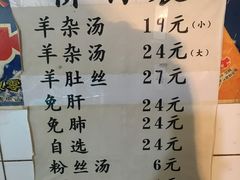 羊杂汤 19元(小)
羊杂汤 24元(大)
羊肚丝 27元
免肝 24元
免肺 24元
自选 24元
粉丝汤 6元